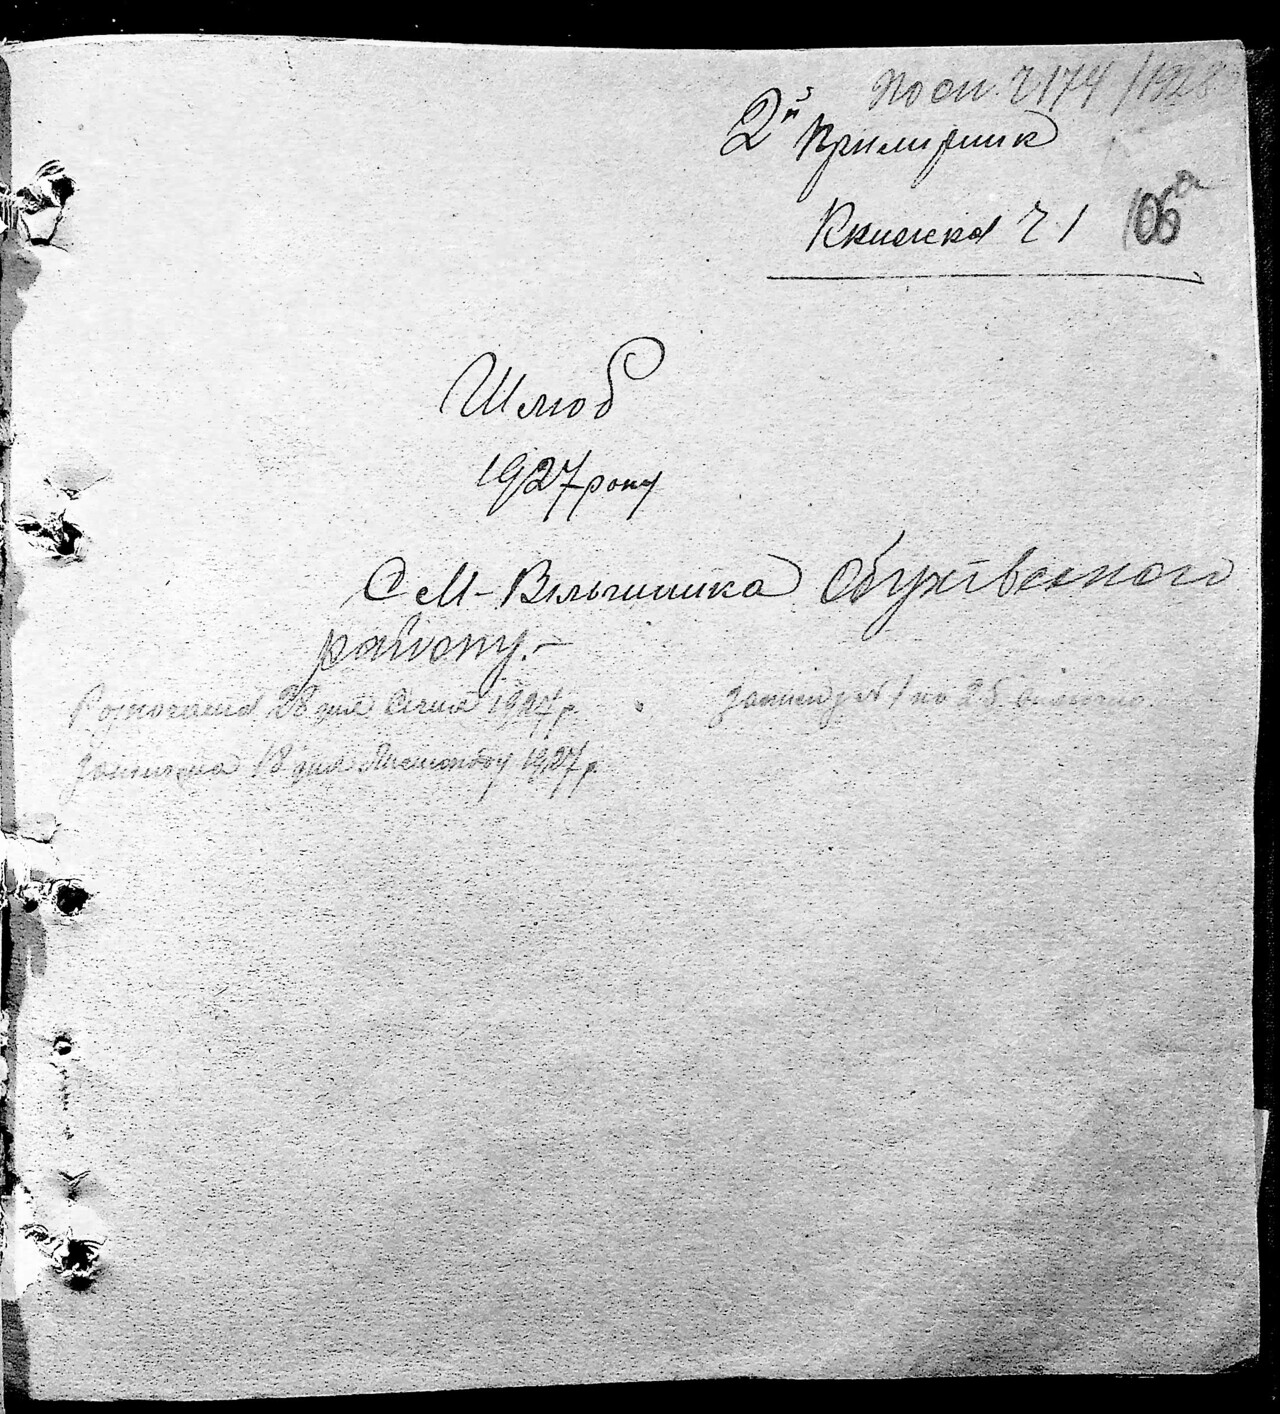 По оп. Ч 174/1928
2й Примірник
Книжка Ч 1 106а
Шлюб
1927 року
С М-Вільшанка Обухівського
району.-
Розпочата 28 дня Січня 1927 р. записів № 1 по 25 включно.
Закінчена 18 дня Листопаду 1927 р.